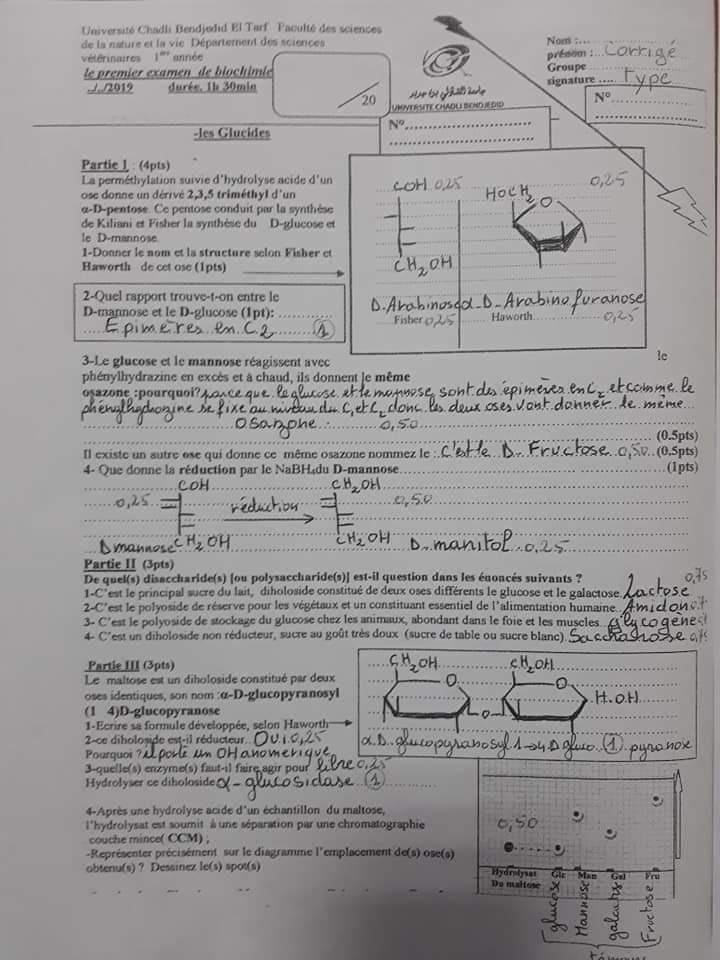 Université Chadli Bendjedid El Tarf Faculté des sciences
de la nature et la vie Département des sciences
vétérinaires 1ère année
le premier examen de biochimie
../../2019 durée. 1h 30min
/20
UNIVERSITE CHADLI BENDJEDID
Nom :...
prénom : Corrigé
Groupe
signature .... type
N°
N°
-les Glucides
Partie I : (4pts)
La perméthylation suivie d'hydrolyse acide d'un
ose donne un dérivé 2,3,5 triméthyl d'un
α-D-pentose. Ce pentose conduit par la synthèse
de Kiliani et Fisher la synthèse du D-glucose et
le D-mannose.
1-Donner le nom et la structure selon Fisher et
Haworth de cet ose (1pts)
COH 0,25
CH2OH
HOCH2 0,25
O
D.Arabinose
Fisher 0,25
α-D-Arabinofuranose
Haworth 0,25
2-Quel rapport trouve-t-on entre le
D-mannose et le D-glucose (1pt): ............
Epimères en C2 1
3-Le glucose et le mannose réagissent avec le
phénylhydrazine en excès et à chaud, ils donnent le même
osazone :pourquoi? parce que le glucose et le mannose sont des épimères en C2 et comme le
phénylhydrazine se fixe au niveau du C1 et C2 donc les deux oses vont donner le même
osazone 0,50
(0.5pts)
Il existe un autre ose qui donne ce même osazone nommez le : C'est le D-Fructose 0,50 (0.5pts)
4- Que donne la réduction par le NaBH4du D-mannose (1pts)
COH
0,25
CH2OH
D mannose
réduction
CH2OH
0,50
CH2OH
D-manitol 0,25
Partie II (3pts)
De quel(s) disaccharide(s) [ou polysaccharide(s)] est-il question dans les énoncés suivants ?
1-C'est le principal sucre du lait, diholoside constitué de deux oses différents le glucose et le galactose. Lactose 0,75
2-C'est le polyoside de réserve pour les végétaux et un constituant essentiel de l'alimentation humaine. Amidon
3- C'est le polyoside de stockage du glucose chez les animaux, abondant dans le foie et les muscles. glycogène
4- C'est un diholoside non réducteur, sucre au goût très doux (sucre de table ou sucre blanc). Saccharose
Partie III (3pts)
Le maltose est un diholoside constitué par deux
oses identiques, son nom :α-D-glucopyranosyl
(1 4)D-glucopyranose
1-Ecrire sa formule développée, selon Haworth
2-ce diholoside est-il réducteur.. Oui 0,25
Pourquoi ? il porte un OH anomérique
libre 0,25
3-quelle(s) enzyme(s) faut-il faire agir pour
Hydrolyser ce diholoside α-glucosidase 1
CH2OH CH2OH
O O
O H.OH
α.D.glucopyranosyl 1→4 D gluco 1 pyranose
4-Après une hydrolyse acide d'un échantillon du maltose,
l'hydrolysat est soumit à une séparation par une chromatographie
couche mince( CCM) ;
-Représenter précisément sur le diagramme l'emplacement de(s) ose(s)
obtenu(s) ? Dessinez le(s) spot(s)
0,50
Hydrolysat Glc Man Gal Fru
Du maltose
glucose
Mannose
Fructose